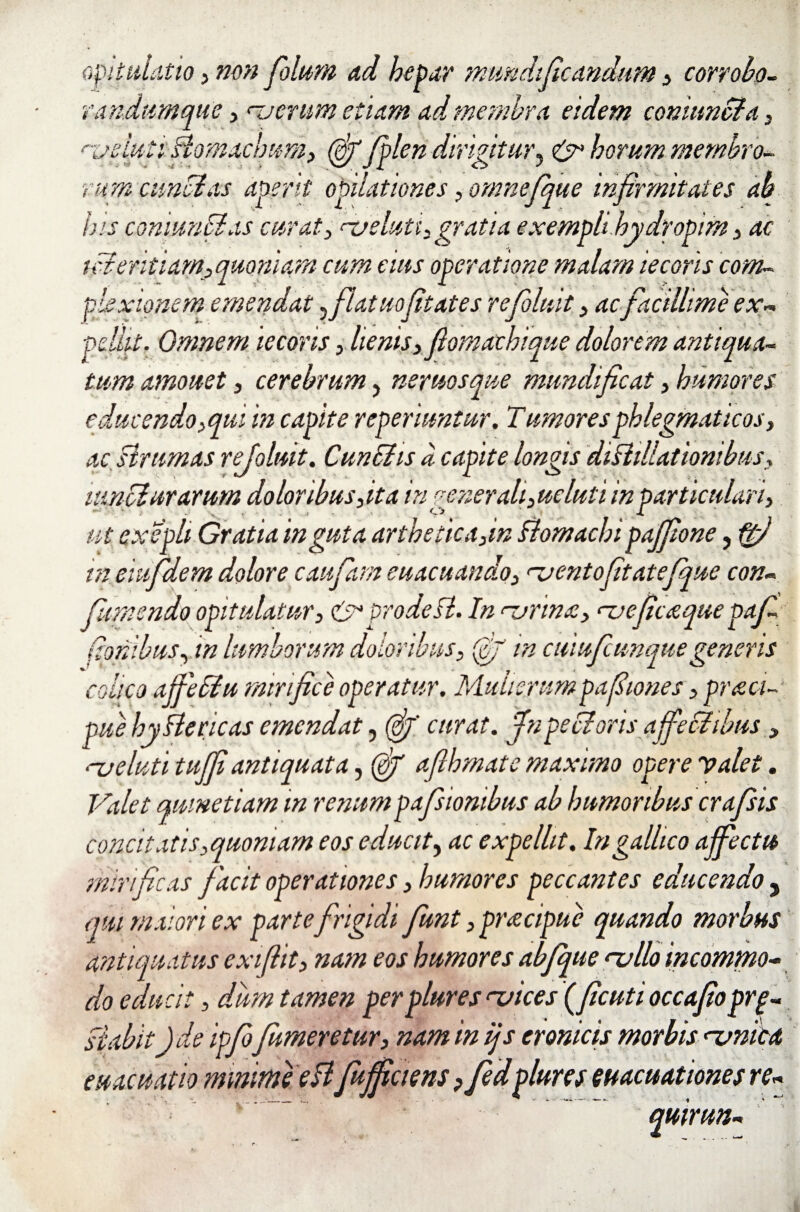 opitulatio, non solum ad hepar mundificandum, corrobo-
randumque, verum etiam ad membra eidem coniuncta,
veluti stomachum, & splen dirigitur, & horum membro-
rum cunctas aperit opilationes, omnesque infirmitates ab
his coniunctas curat, veluti, gratia exempli hydropim, ac
icteritiam, quoniam cum eius operatione malam iecoris com-
plexionem emendat, flatuositates resoluit, ac facillime ex-
pellit. Omnem iecoris, lienis, stomachique dolorem antiqua-
tum amouet, cerebrum, neruosque mundificat, humores
educendo, qui in capite reperiuntur. Tumores phlegmaticos,
ac strumas resoluit. Cunctis à capite longis distillationibus,
iuncturarum doloribus, ita in generali, ueluti in particulari,
ut exẽpli Gratia in guta arthetica, in stomachi passione, &
in eiusdem dolore causam euacuando, ventositatesque con-
sumendo opitulatur, & prodest. In vrinæ, vesicæque pas-
sionibus, in lumborum doloribus, & in cuiuscunque generis
colico affectu mirificè operatur. Mulierum passiones, præci-
puè hystericas emendat, & curat. In pectoris affectibus,
veluti tussi antiquata, & asthmate maximo opere valet.
Valet quinetiam in renum passionibus ab humoribus crassis
concitatis, quoniam eos educit, ac expellit. In gallico affectu
mirificas facit operationes, humores peccantes educendo,
qui maiori ex parte frigidi sunt, præcipuè quando morbus
antiquatus existit, nam eos humores absque vllo incommo-
do educit, dùm tamen per plures vices (sicuti occasio pre-
stabit) de ipso sumeretur, nam in ijs cronicis morbis vnica
euacuatio minimè est sufficiens, sed plures euacuationes re-
quirun-